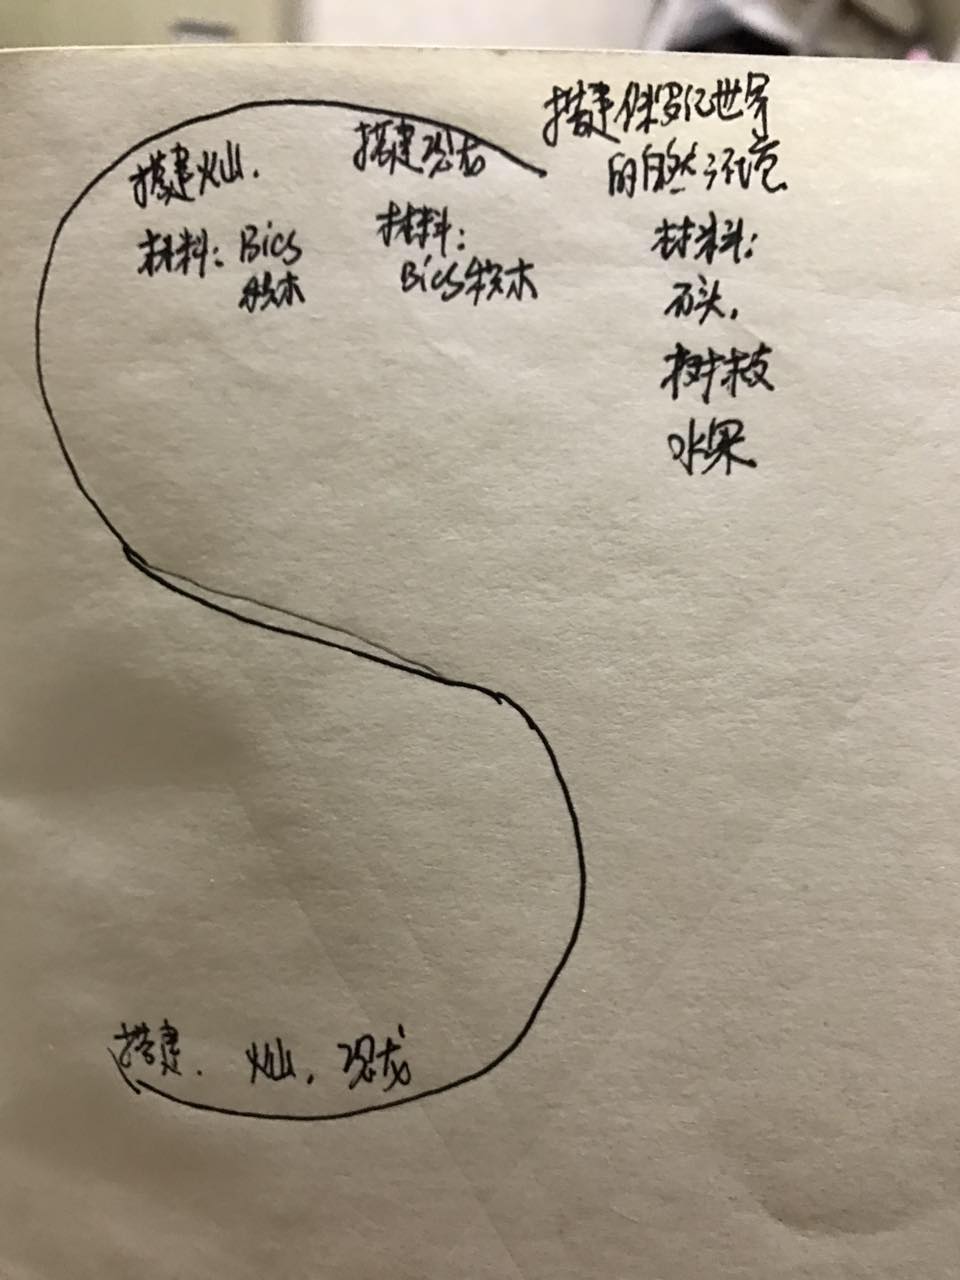 搭建火山.
材料: Bics
积木
搭建恐龙
材料:
Bics积木
搭建侏罗纪世界
的自然环境
材料:
石头,
树枝
水果
搭建. 火山. 恐龙